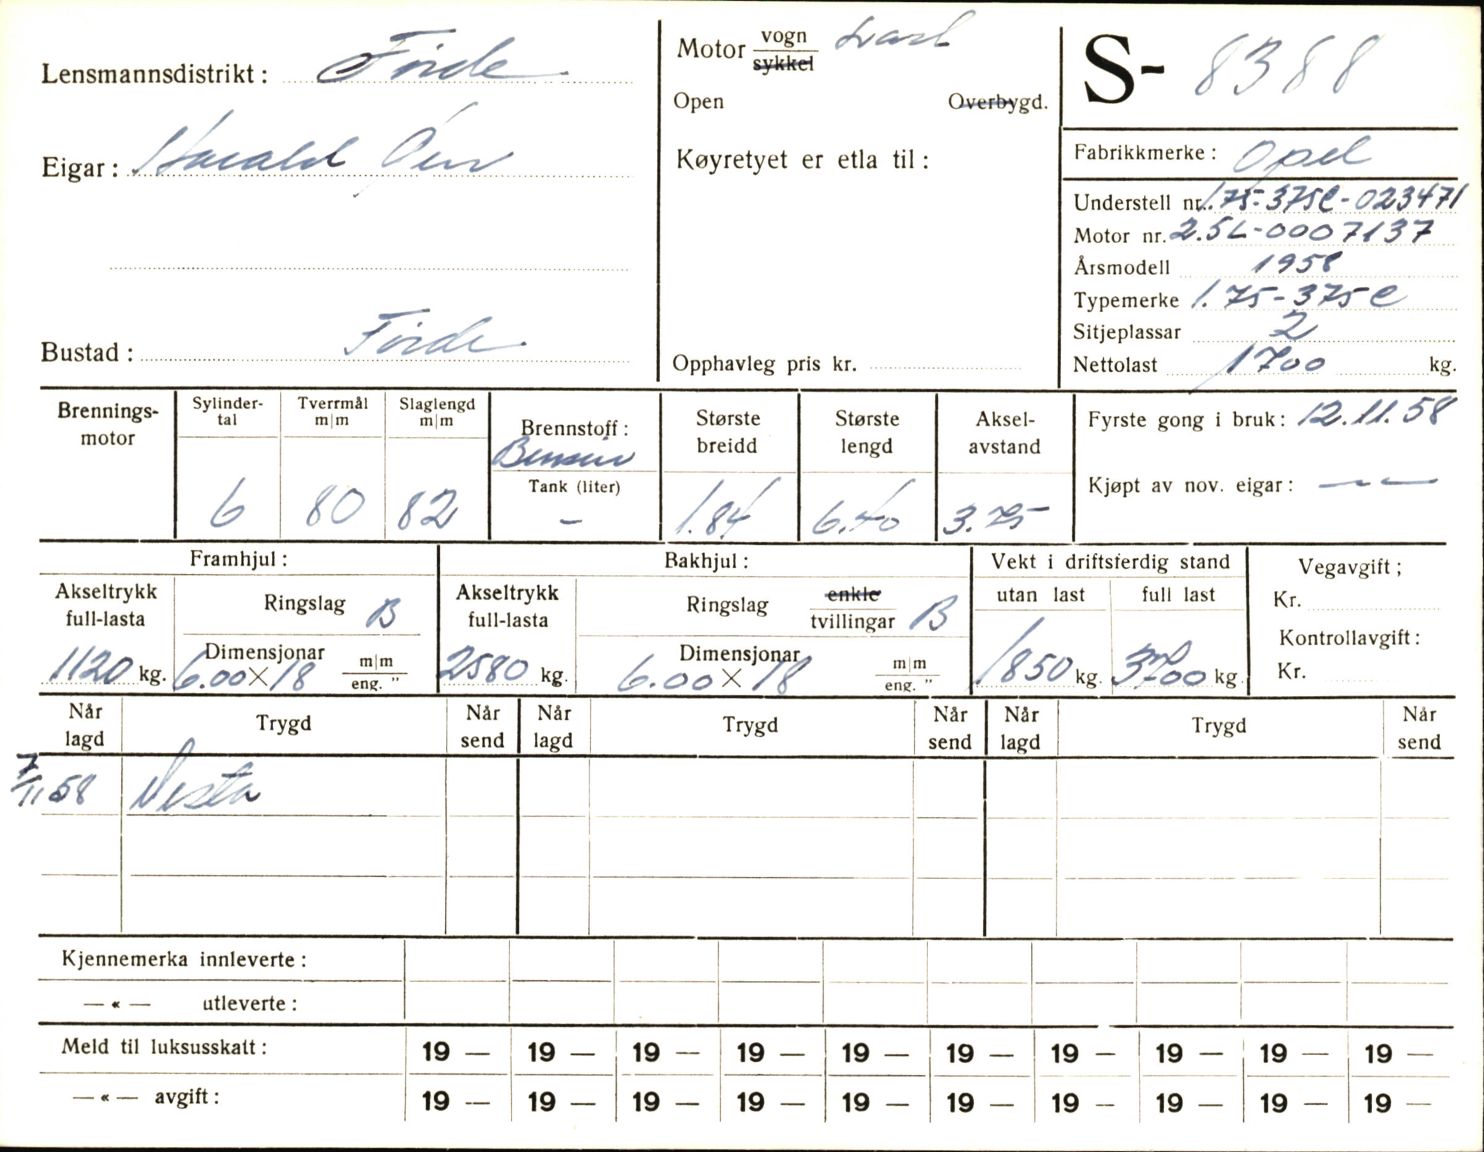 Lensmannsdistrikt: Førde
Eigar: Harald
Bustad: Førde
Motor vogn sykkel Last
Open Overbygd.
Køyretyet er etla til:
Opphavleg pris kr.
S- 8388
Fabrikkmerke: Opel
Understell nr. 1.75-375C-023471
Motor nr. 2.5L-0007137
Årsmodell 1958
Typemerke 1.75-375C
Sitjeplassar 2
Nettolast 1700 kg.
Brennings-motor
Sylinder-tal 6
Tverrmål m|m 80
Slaglengd m|m 82
Brennstoff: Bensin
Tank (liter) –
Største breidd 1.84
Største lengd 6.40
Aksel-avstand 3.75
Fyrste gong i bruk: 12.11.58
Kjøpt av nov. eigar: — —
Framhjul:
Akseltrykk full-lasta 1120 kg.
Ringslag B
Dimensjonar 6.00 × 18 m|m eng. "
Bakhjul:
Akseltrykk full-lasta 2580 kg.
Ringslag enkle tvillingar B
Dimensjonar 6.00 × 18 m|m eng. "
Vekt i driftsferdig stand
utan last 1850 kg.
full last 3700 kg.
Vegavgift;
Kr.
Kontrollavgift:
Kr.
Når lagd Trygd Når send Når lagd Trygd Når send Når lagd Trygd Når send
7/11 58 Vesta
Kjennemerka innleverte:
— « — utleverte:
Meld til luksusskatt: 19 — 19 — 19 — 19 — 19 — 19 — 19 — 19 — 19 — 19 —
— « — avgift: 19 — 19 — 19 — 19 — 19 — 19 — 19 — 19 — 19 — 19 —